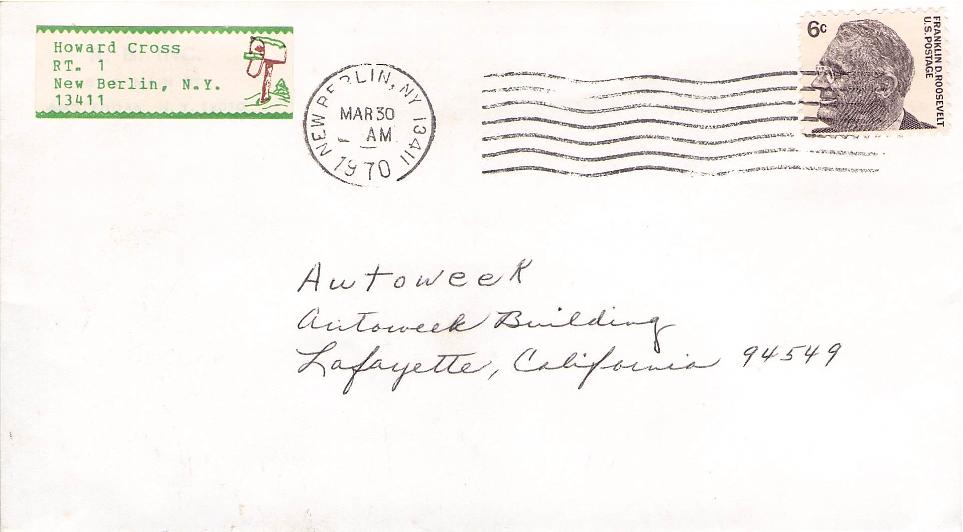 Howard Cross
RT. 1
New Berlin, N.Y.
13411
NEW BERLIN, NY 13411
MAR 30
AM
1970
6c
FRANKLIN D. ROOSEVELT
U.S. POSTAGE
Autoweek
Autoweek Building
Lafayette, California 94549